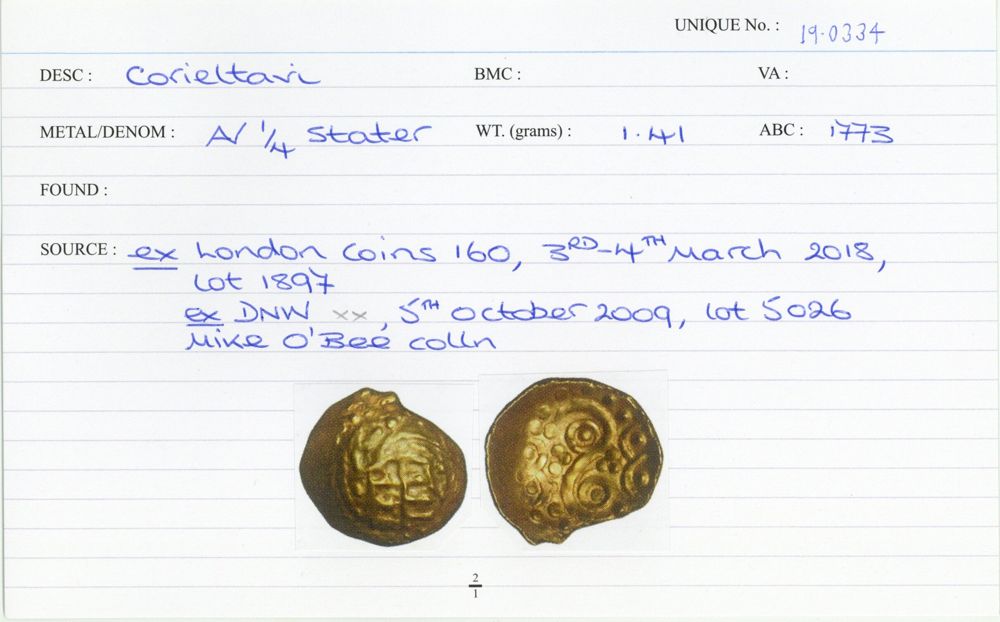 UNIQUE No. : 19·0334
DESC : Corieltavi BMC : VA :
METAL/DENOM : A/ 1/4 Stater WT. (grams) : 1.41 ABC : 1773
FOUND :
SOURCE : ex London Coins 160, 3RD-4TH March 2018,
Lot 1897
ex DNW xx, 5TH October 2009, lot 5026
Mike O'Bee colln
2
1